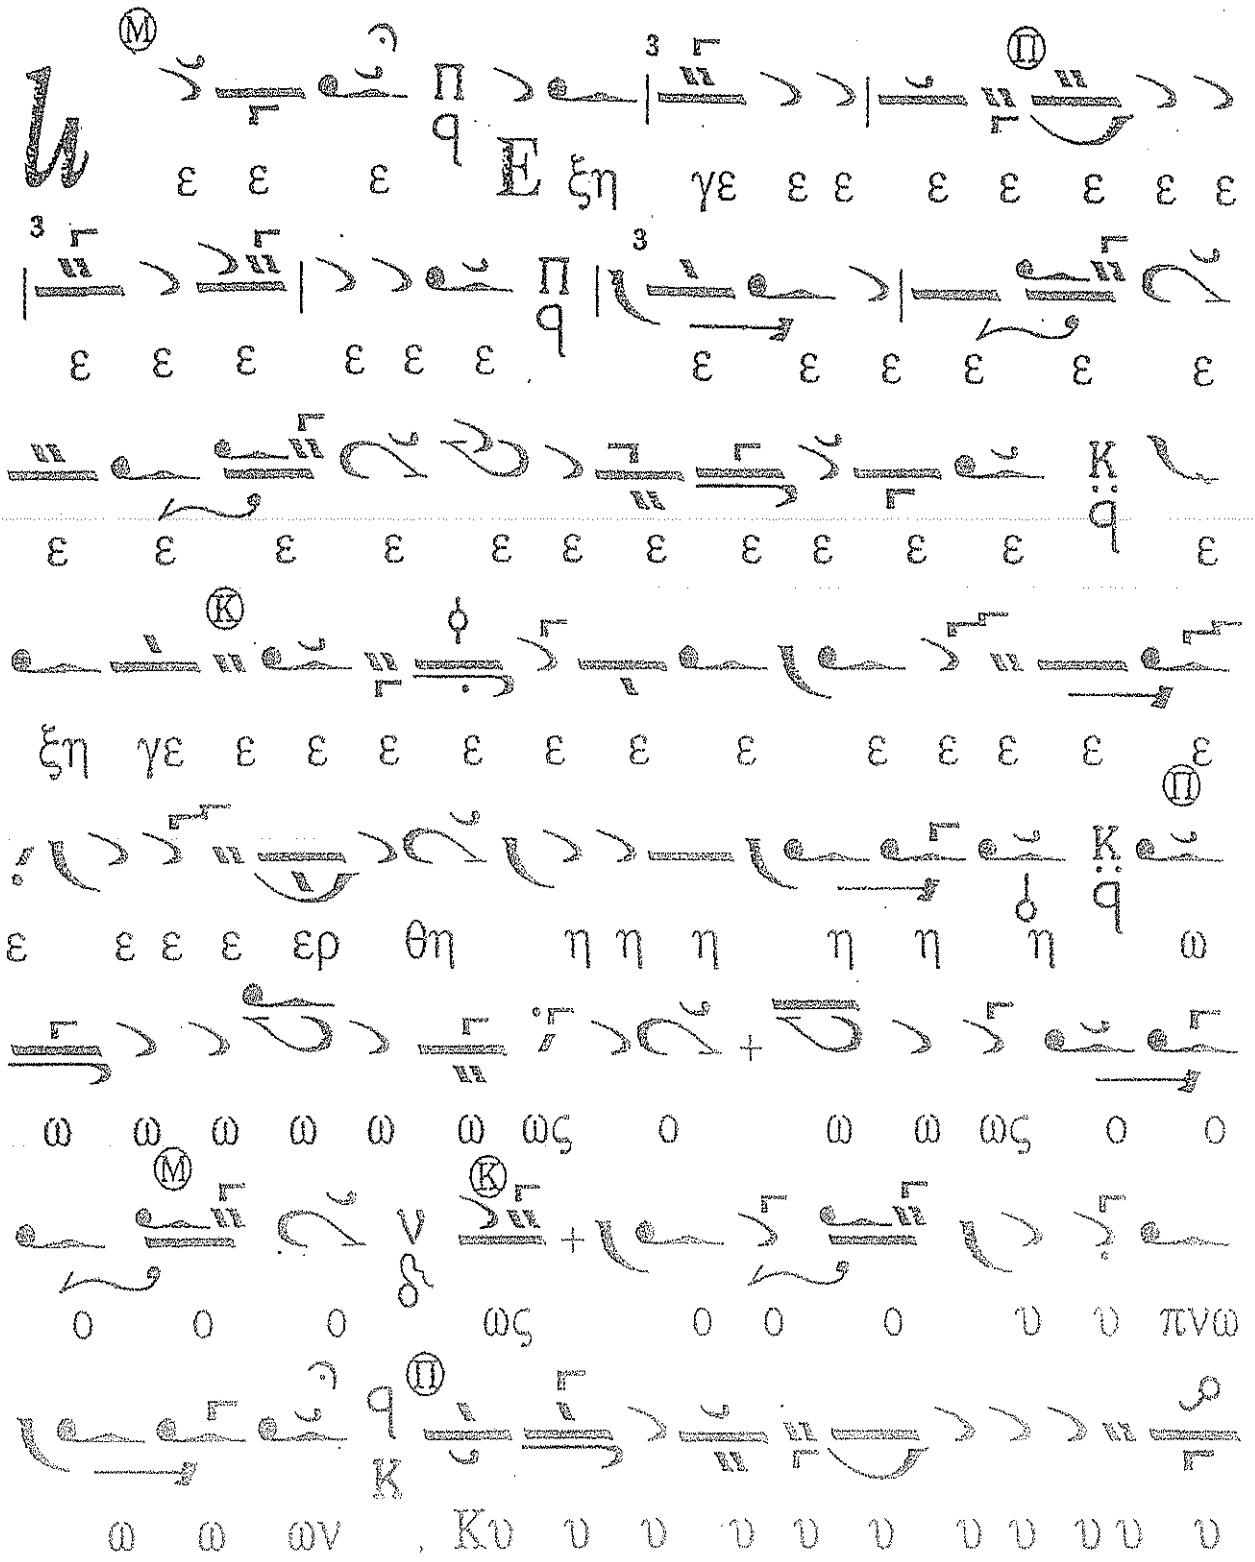 Μ Π
ε ε ε Π q Ε ξη γε ε ε ε ε ε ε ε
ε ε ε ε ε ε Π q ε ε ε ε ε ε
ε ε ε ε ε ε ε ε ε ε ε Κ q ε
Κ
ξη γε ε ε ε ε ε ε ε ε ε ε ε ε
Π
ε ε ε ε ερ θη η η η η η η Κ q ω
ω ω ω ω ω ω ως ο ω ω ως ο ο
Μ Κ
ο ο ο ν ως ο ο ο υ υ πνω
Π
ω ω ων q Κ Κυ υ υ υ υ υ υ υ υ υ υ